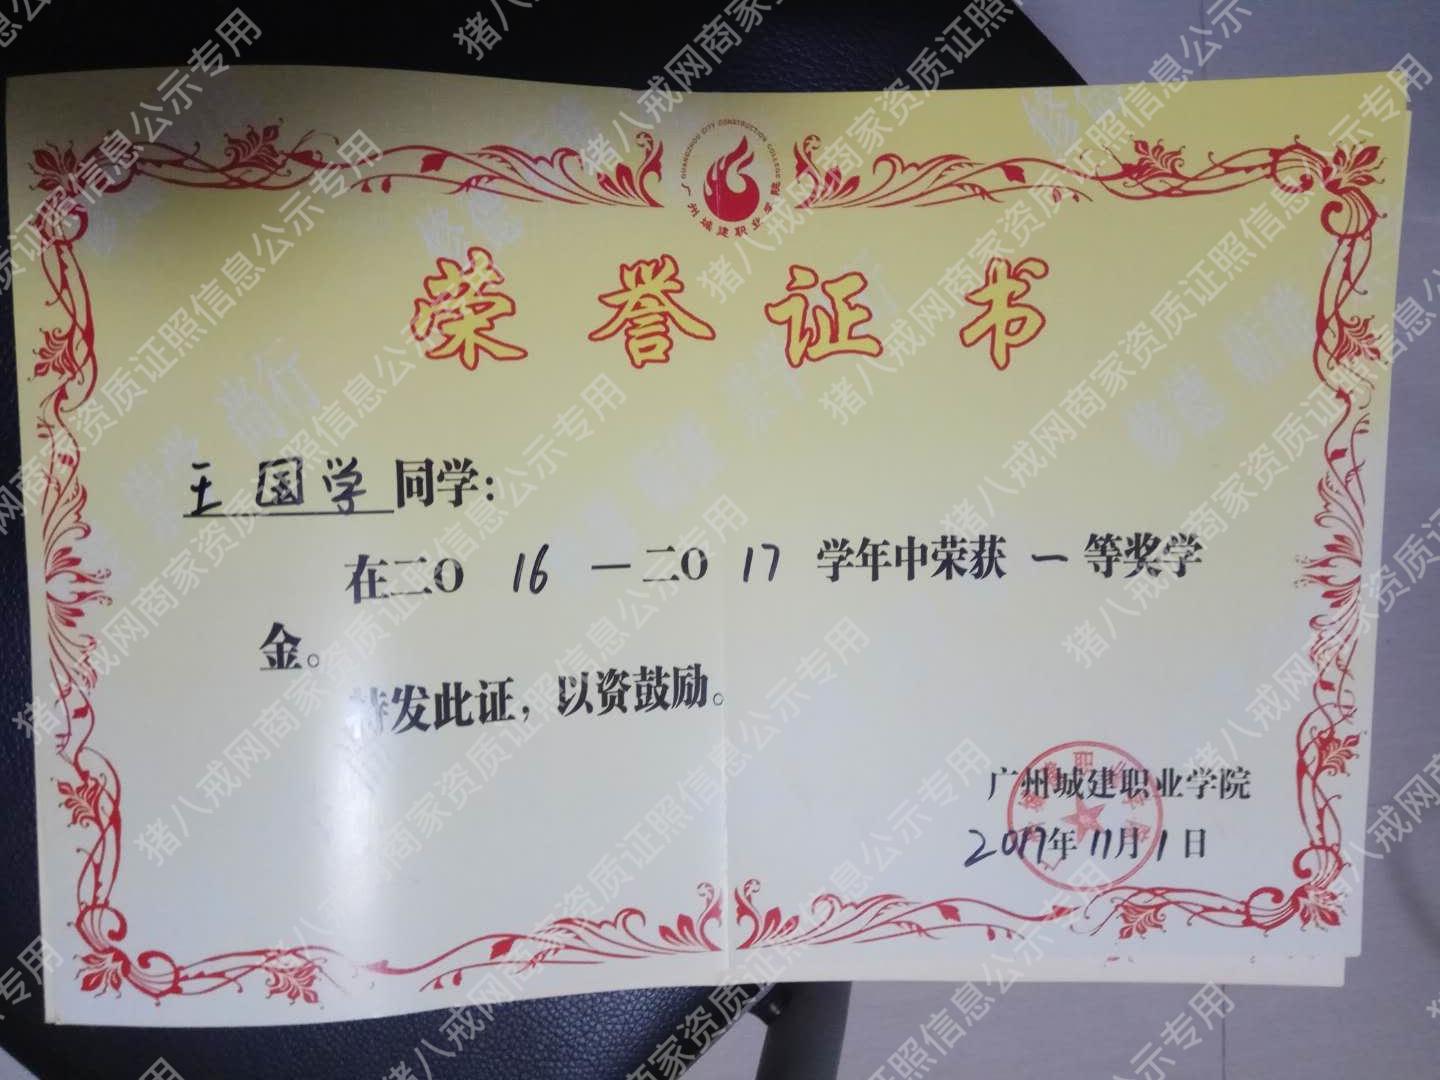 GUANGZHOU CITY CONSTRUCTION COLLEGE
广州城建职业学院
荣誉证书
王国学同学：
在二O 16 一二O 17 学年中荣获 一 等奖学
金。
特发此证，以资鼓励。
广州城建职业学院
2017年11月1日
猪八戒网商家资质证照信息公示专用